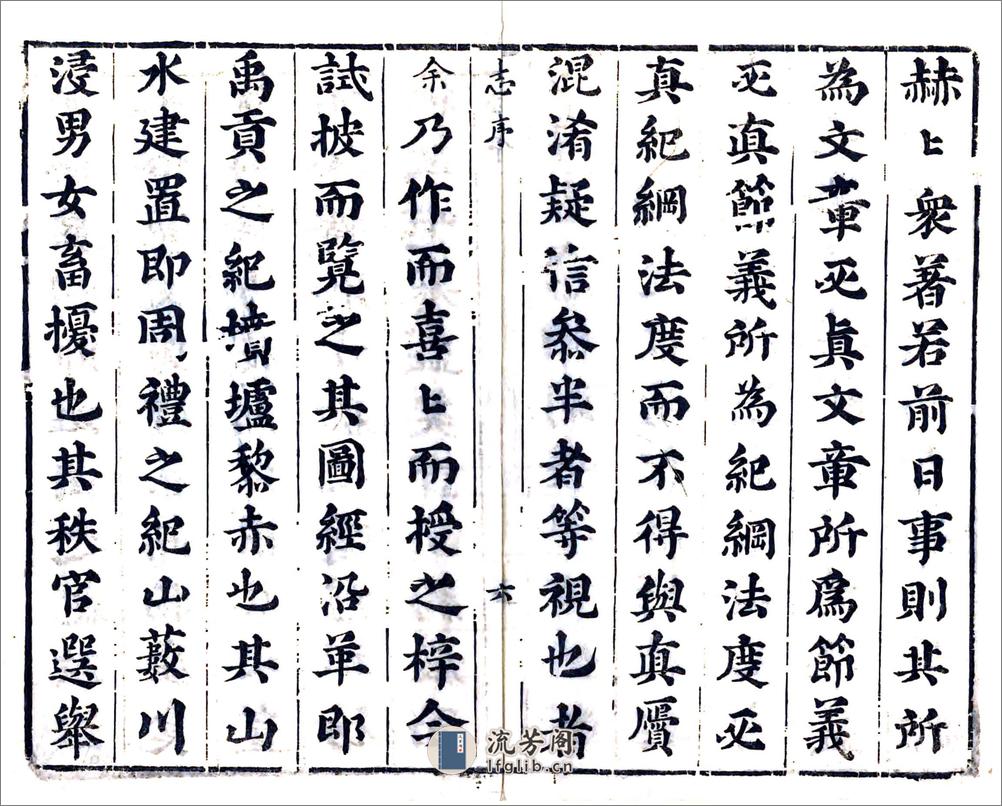 赫匕衆著若前日事則其所
為文章必真文章所爲節義
必真節義所為紀綱法度必
真紀綱法度而不得與真贗
混淆疑信叅半者等視也者
志序 六
余乃作而喜匕而授之梓今
試披而覽之其圖經沿革即
禹貢之紀墳壚黎赤也其山
水建置即周禮之紀山藪川
浸男女畜擾也其秩官選舉
流芳阁
lfglib.cn